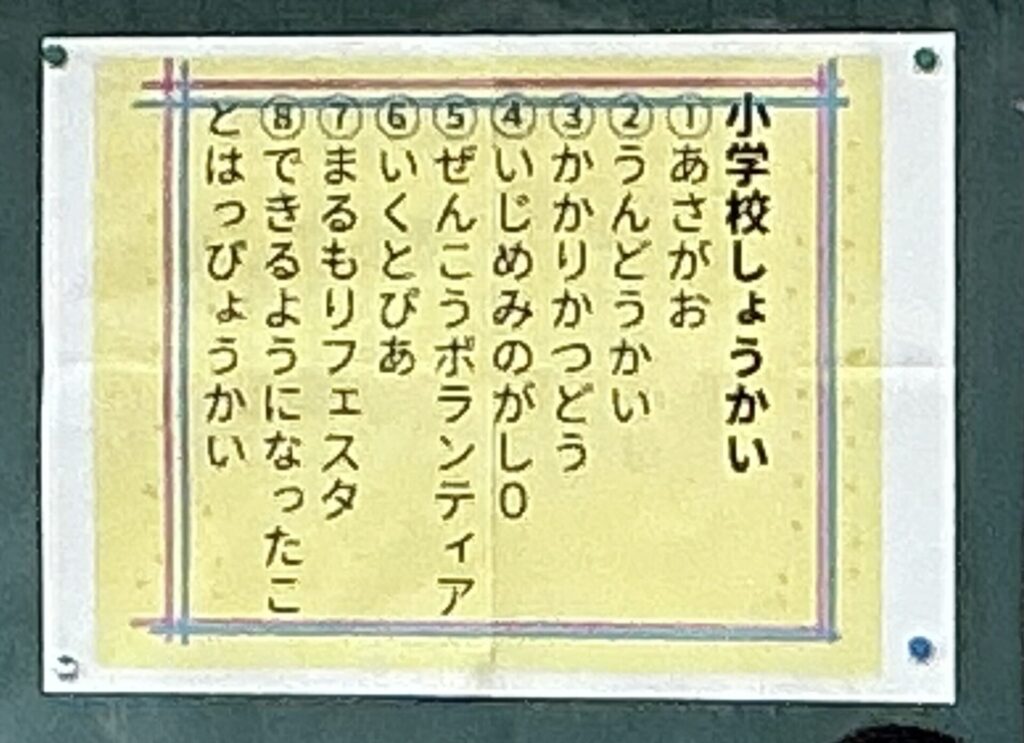 小学校しょうかい
①あさがお
②うんどうかい
③かかりかつどう
④いじめみのがし０
⑤ぜんこうボランティア
⑥いくとぴあ
⑦まるもりフェスタ
⑧できるようになったこ
とはっぴょうかい